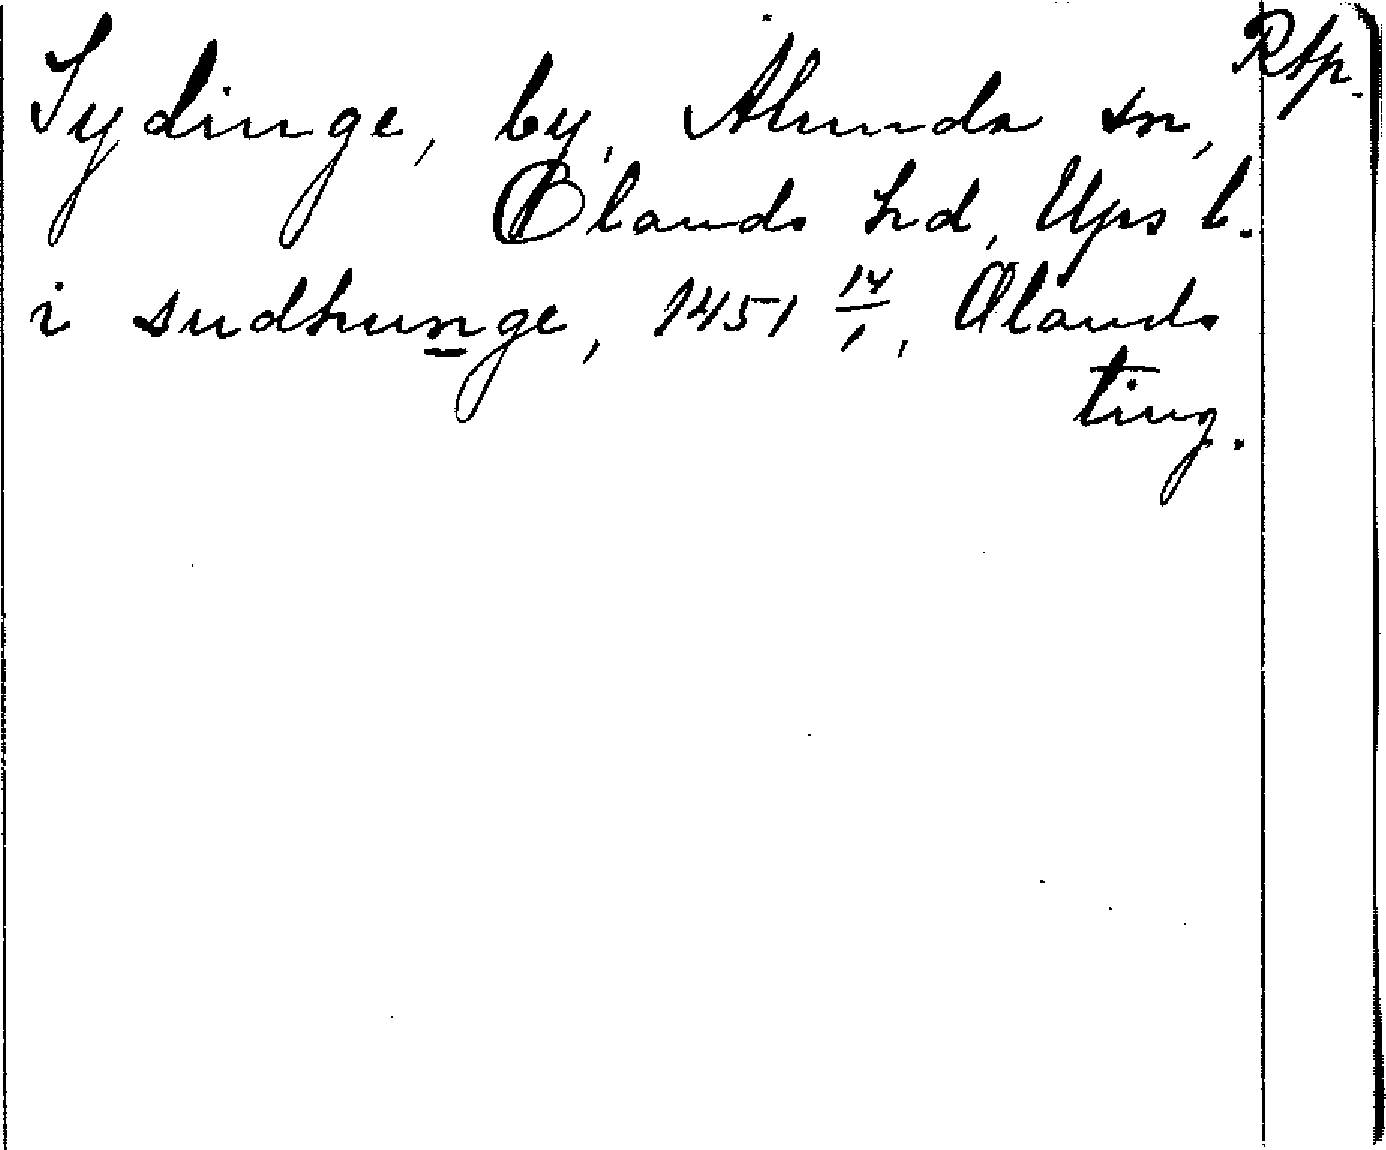 Rsp.
Sydinge, by, Alunda sn,
Olands hd, Ups l.
i sudhunge, 1451 14/1, Olands
ting.